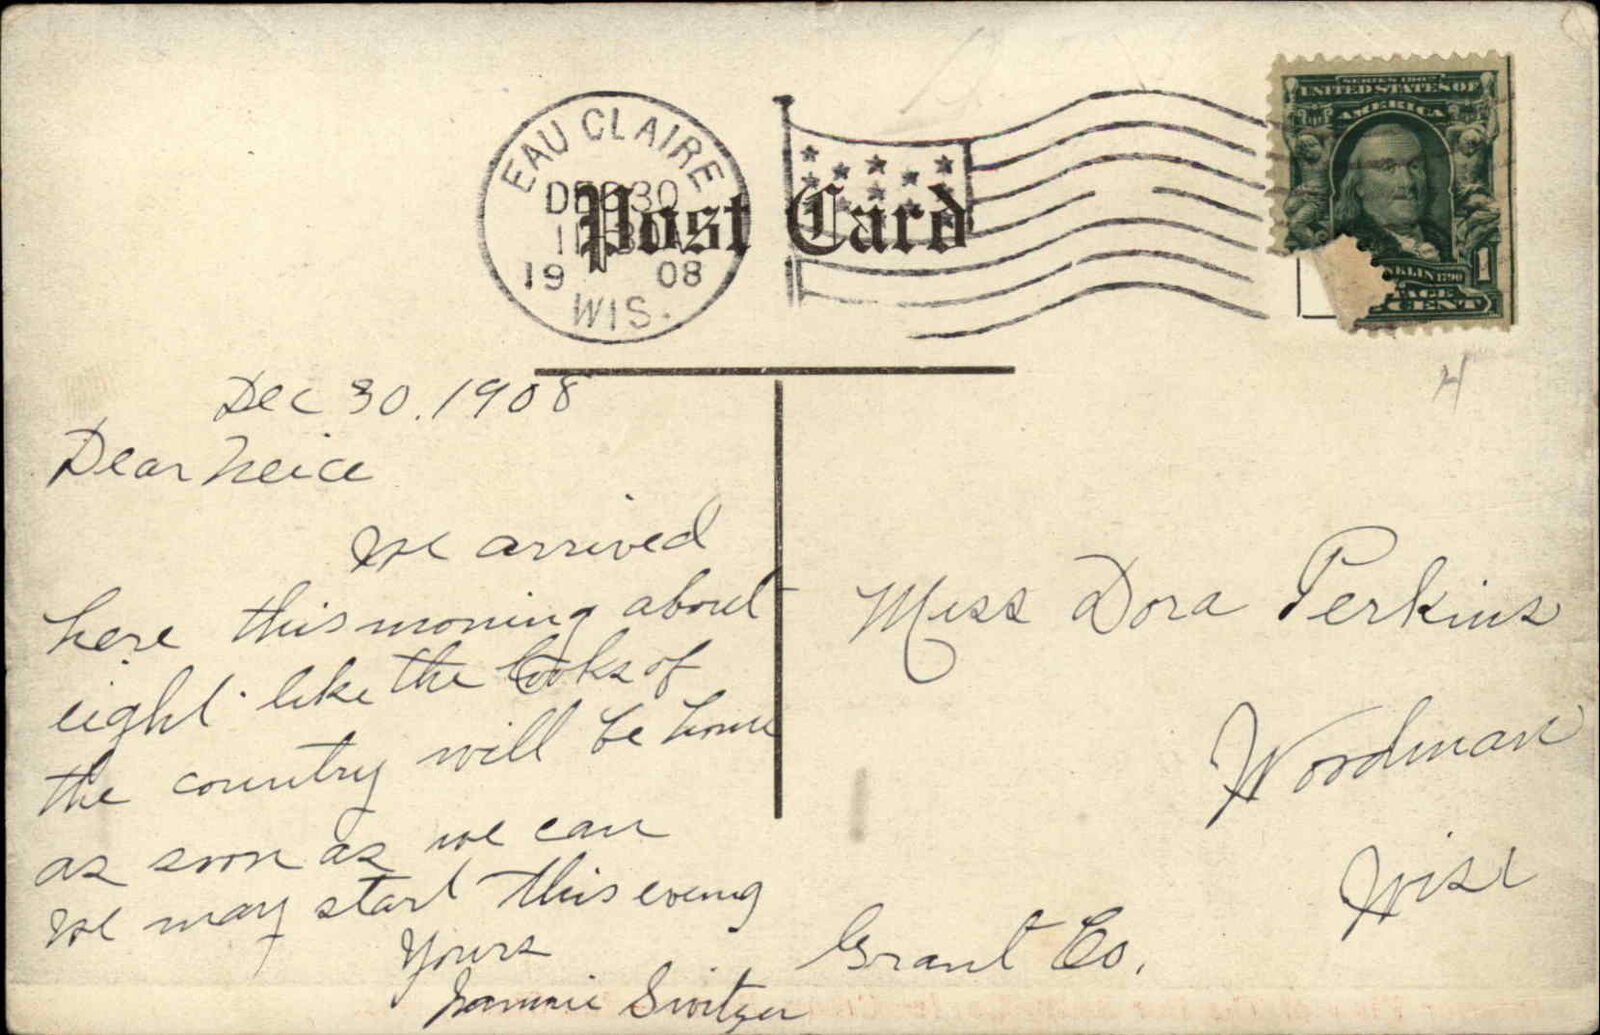 EAU CLAIRE
DEC 30
19 08
WIS.
Post Card
SERIES 1902
UNITED STATES OF
AMERICA
KLIN 1790
AGE
1
CENT
Dec 30. 1908
Dear Neice
We arrived
here this moning about
eight like the looks of
the country will be home
as soon as we can
we may start this evening
Yours
Switzer
Miss Dora Perkins
Woodman
Wis
Grant Co.